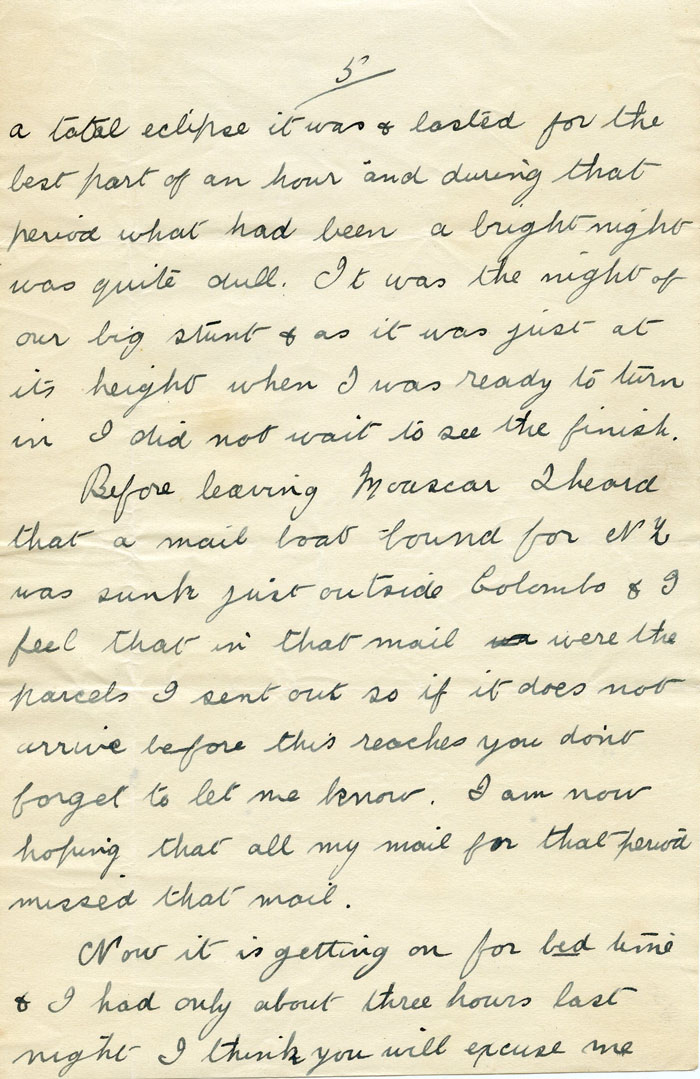 5
a total eclipse it was & lasted for the
best part of an hour and during that
period what had been a bright night
was quite dull. It was the night of
our big stunt & as it was just at
its height when I was ready to turn
in I did not wait to see the finish.
Before leaving Moascar I heard
that a mail boat bound for NZ
was sunk just outside Colombo & I
feel that in that mail were the
parcels I sent out so if it does not
arrive before this reaches you dont
forget to let me know. I am now
hoping that all my mail for that period
missed that mail.
Now it is getting on for bed time
& I had only about three hours last
night I think you will excuse me